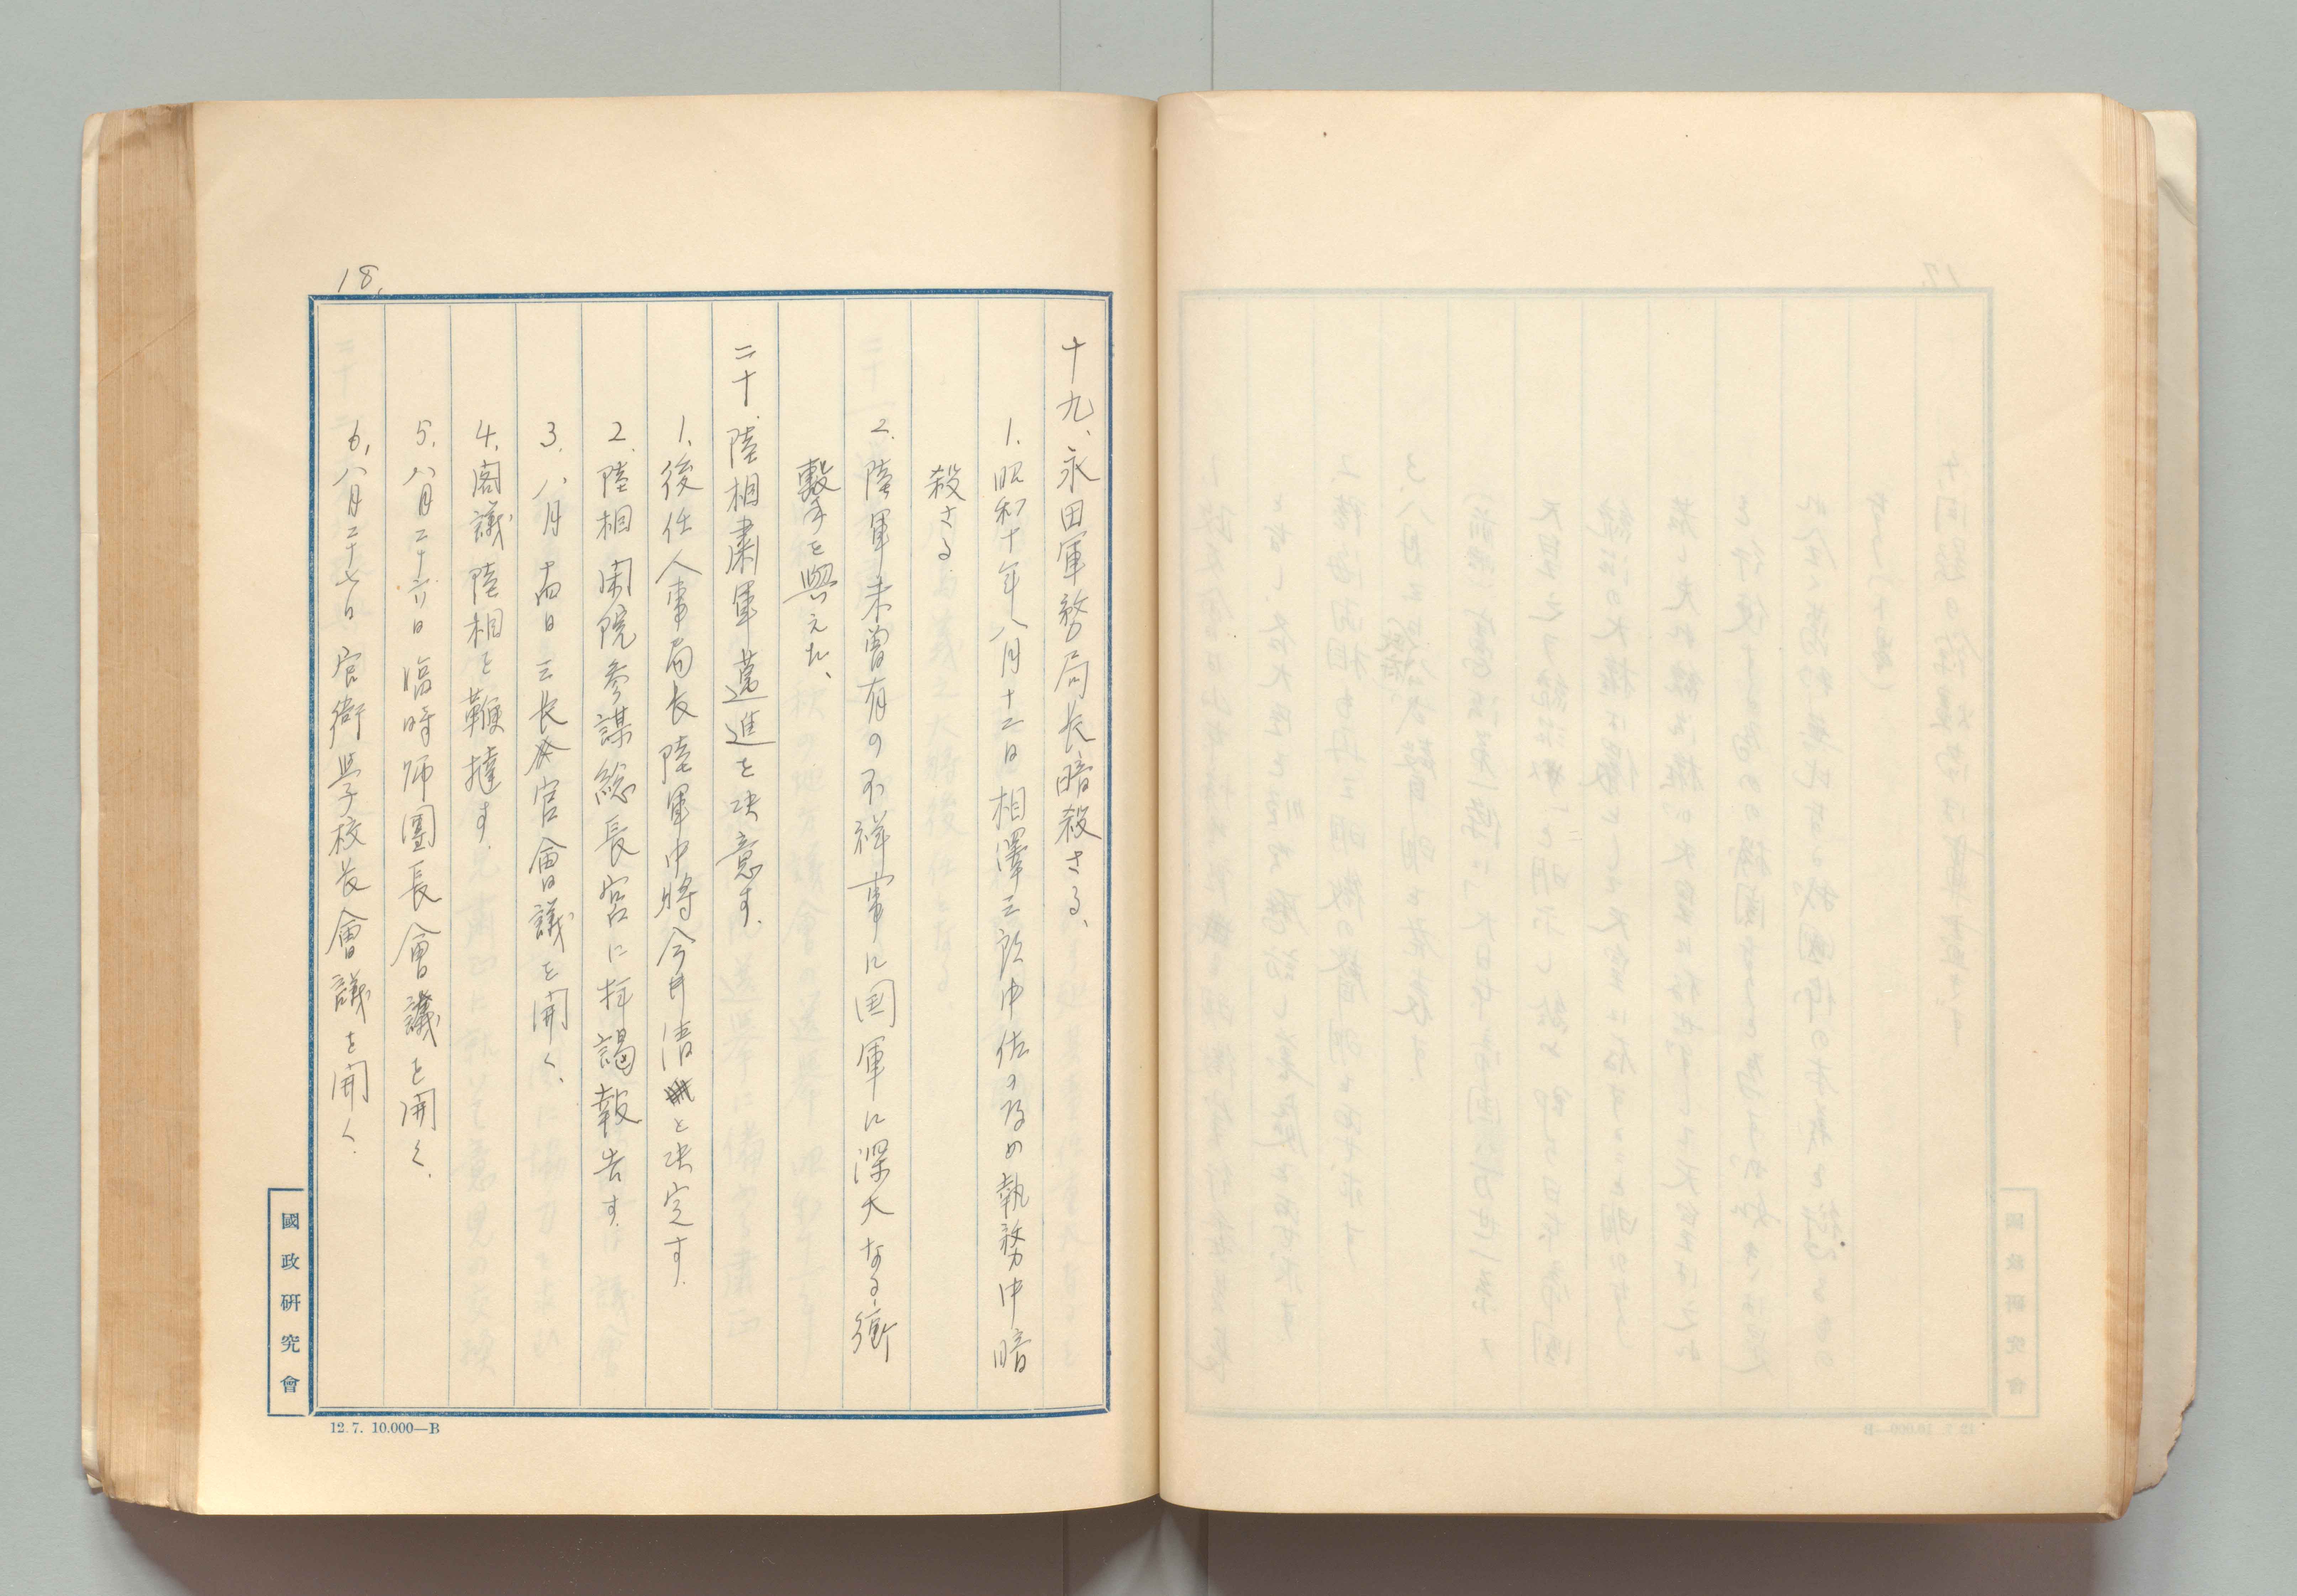 18.
十九、永田軍務局長暗殺さる、
1. 昭和十年八月十二日相澤三郎中佐の為め執務中暗
殺さる.
2. 陸軍未曾有の不祥事に国軍に深大なる衝
擊を與えた、
二十.陸相肅軍邁進を决意す.
1. 後任人事局長陸軍中將今井清と决定す.
2. 陸相閑院参謀総長宮に拝謁報告す.
3. 八月十四日三長官會議を開く.
4. 閣議陸相を鞭撻す.
5. 八月二十六日臨時师團長會議を開く.
6. 八月二十七日官衙學校长會議を開く.
國政研究會
12. 7. 10.000—B